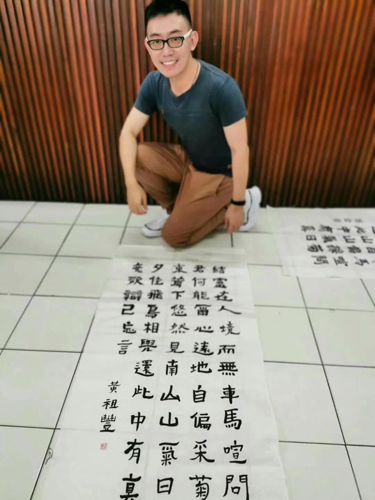 結廬在人境而無車馬喧問
君何能爾心遠地自偏采菊
東籬下悠然見南山山氣日
夕佳飛鳥相與還此中有真
意欲辯已忘言
黃祖豐